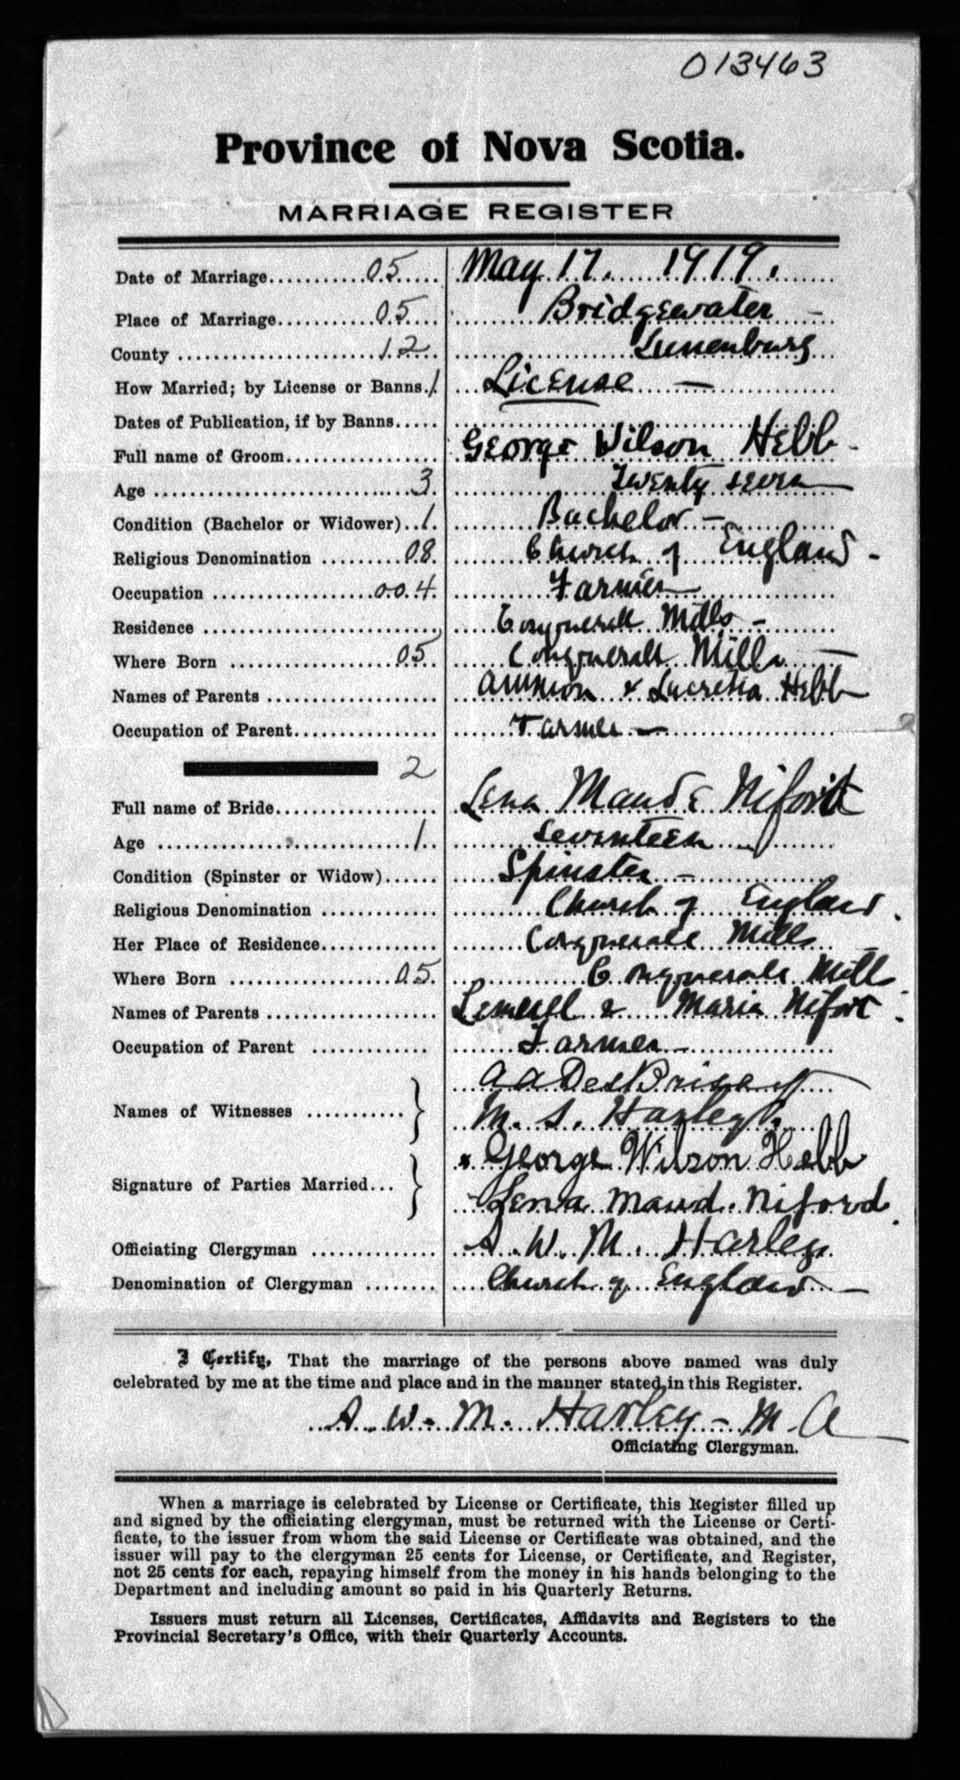 013463
Province of Nova Scotia.
MARRIAGE REGISTER
Date of Marriage 05 May 17. 1919.
Place of Marriage 05 Bridgewater -
County 12 Lunenburg
How Married; by License or Banns. 1 License -
Dates of Publication, if by Banns
Full name of Groom George Wilson Hebb -
Age 3 Twenty seven
Condition (Bachelor or Widower) 1 Bachelor -
Religious Denomination 08 Church of England -
Occupation 004 Farmer
Residence Conquerall Mills -
Where Born 05 Conquerall Mills -
Names of Parents Ammon & Lucretia Hebb
Occupation of Parent Farmer -
2
Full name of Bride Lena Maude Nifort
Age 1 Seventeen
Condition (Spinster or Widow) Spinster -
Religious Denomination Church of England.
Her Place of Residence Conquerall Mills -
Where Born 05 Conquerall Mill
Names of Parents Lemuel & Maria Nifort.
Occupation of Parent Farmer -
Names of Witnesses A A DesBrisay
M. S. Harley
Signature of Parties Married George Wilson Hebb
Lena Maud. Niford.
Officiating Clergyman A. W. M. Harley
Denomination of Clergyman Church of England -
I Certify, That the marriage of the persons above named was duly
celebrated by me at the time and place and in the manner stated in this Register.
A. W. M. Harley - M. A
Officiating Clergyman.
When a marriage is celebrated by License or Certificate, this Register filled up
and signed by the officiating clergyman, must be returned with the License or Certi-
ficate, to the issuer from whom the said License or Certificate was obtained, and the
issuer will pay to the clergyman 25 cents for License, or Certificate, and Register,
not 25 cents for each, repaying himself from the money in his hands belonging to the
Department and including amount so paid in his Quarterly Returns.
Issuers must return all Licenses, Certificates, Affidavits and Registers to the
Provincial Secretary's Office, with their Quarterly Accounts.